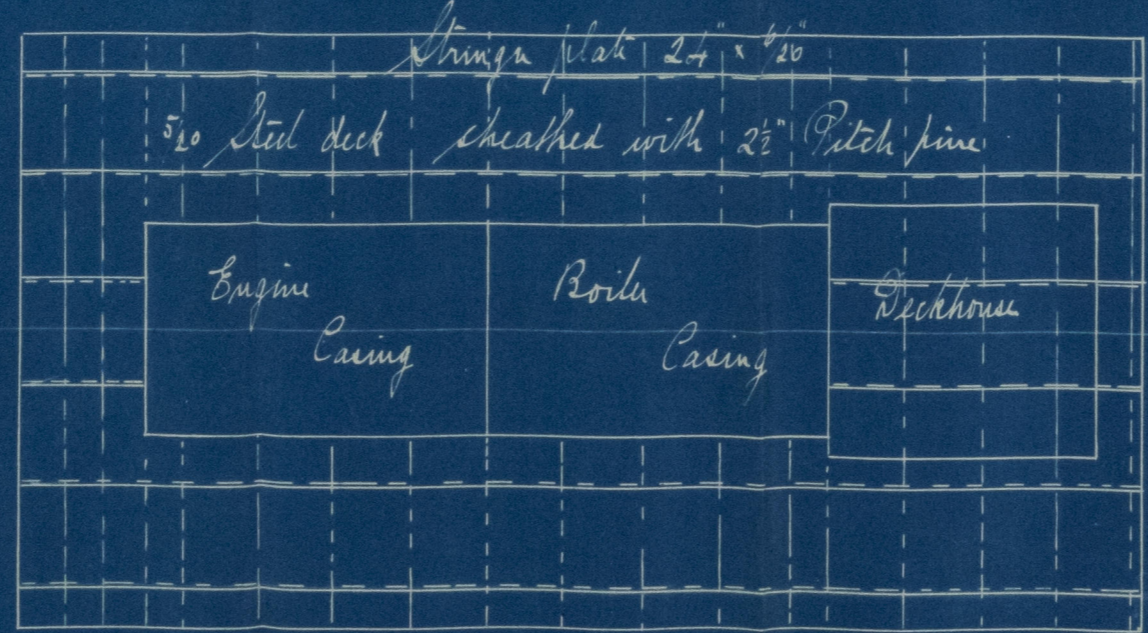 Stringer plate 24" x 6/20"
5/20 Steel deck sheathed with 2½" Pitch pine
Engine
Casing
Boiler
Casing
Deckhouse